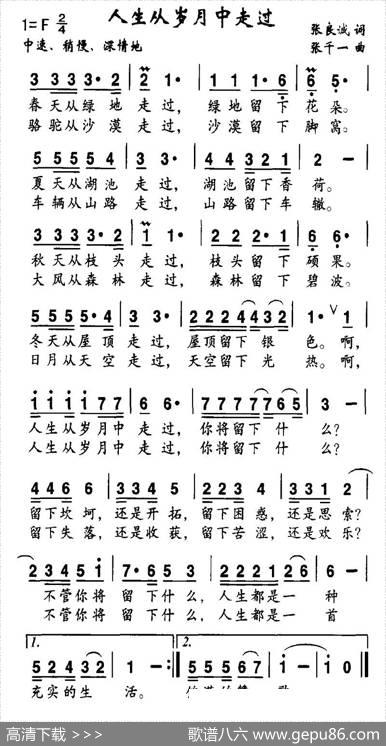 人生从岁月中走过
1=F 2/4
张良诚 词
中速、稍慢、深情地
张千一 曲
3 3 3 3· 2 | 2 1· | 1 1 1· 6 | 6 5· |
春天从绿地走过，绿地留下花朵。
骆驼从沙漠走过，沙漠留下脚窝。
5 5 5 5 4 | 3 3· | 4 4 3 2 1 | 2 － |
夏天从湖池走过，湖池留下香荷。
车辆从山路走过，山路留下车辙。
3 3 3 3· 2 | 1 1· | 2 2 2· 1 | 6 6· |
秋天从枝头走过，枝头留下硕果。
大风从森林走过，森林留下碧波。
5 5 5 5· 4 | 3 3· | 2 2 2 4 4 3 2 | 1· ∨ 1 |
冬天从屋顶走过，屋顶留下银色。啊，
日月从天空走过，天空留下光热。啊，
1 1 1 1 7 7 | 6 6· | 7 7 7 7 7 6 5 | 3 － |
人生从岁月中走过，你将留下什么？
人生从岁月中走过，你将留下什么？
4 4 6 6 | 3 3 4 5 | 2 2 3 4 | 3 3 1 2 |
留下坎坷，还是开拓，留下困惑，还是思索？
留下失落，还是收获，留下苦涩，还是欢乐？
2 3 4 5 1 | 7· 6 6 5 3 | 2 2 2 1 2 6 | 6 － |
不管你将留下什么，人生都是一种
不管你将留下什么，人生都是一首
1.
2.
5 2 4 3 2 | 1 － :‖ 5 5 5 6 7 | 1 － | 1 0 ‖
充实的生活。
高清下载 >>>
歌谱八六 www.gepu86.com